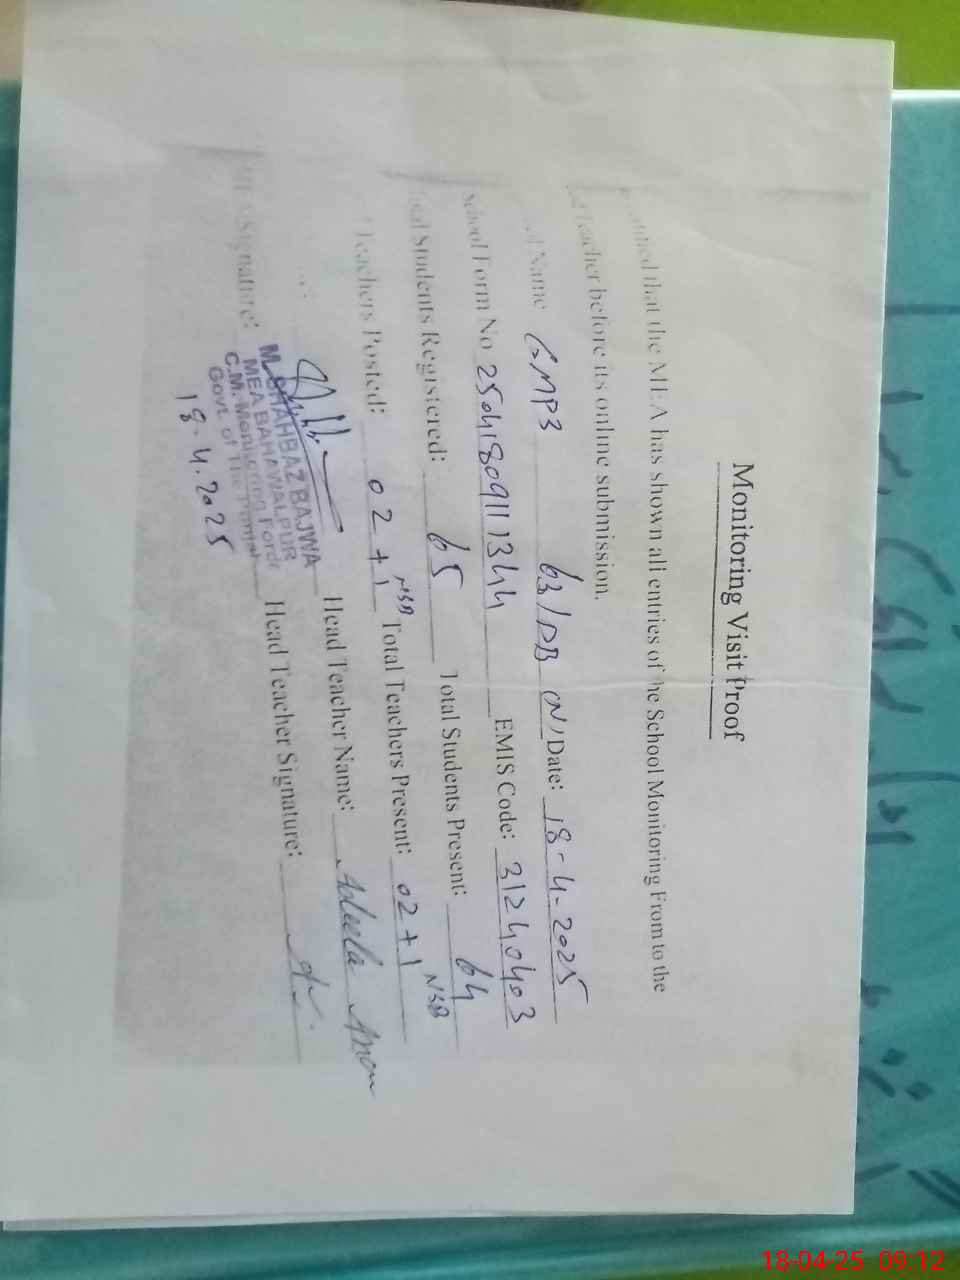 Monitoring Visit Proof
that the MEA has shown all entries of the School Monitoring From to the
Teacher before its online submission.
Name GMPS 63/DB (N) Date: 18-4-2025
School Form No 25041809111344 EMIS Code: 31240403
Total Students Registered: 65 Total Students Present: 64
Teachers Posted: 02+1 NSB Total Teachers Present: 02+1 NSB
Head Teacher Name:
MEA Signature: Head Teacher Signature:
M. SHAHBAZ BAJWA
MEA BAHAWALPUR
C.M. Monitoring Force
Govt. of The Punjab
18-4-2025
18-04-25 09:12